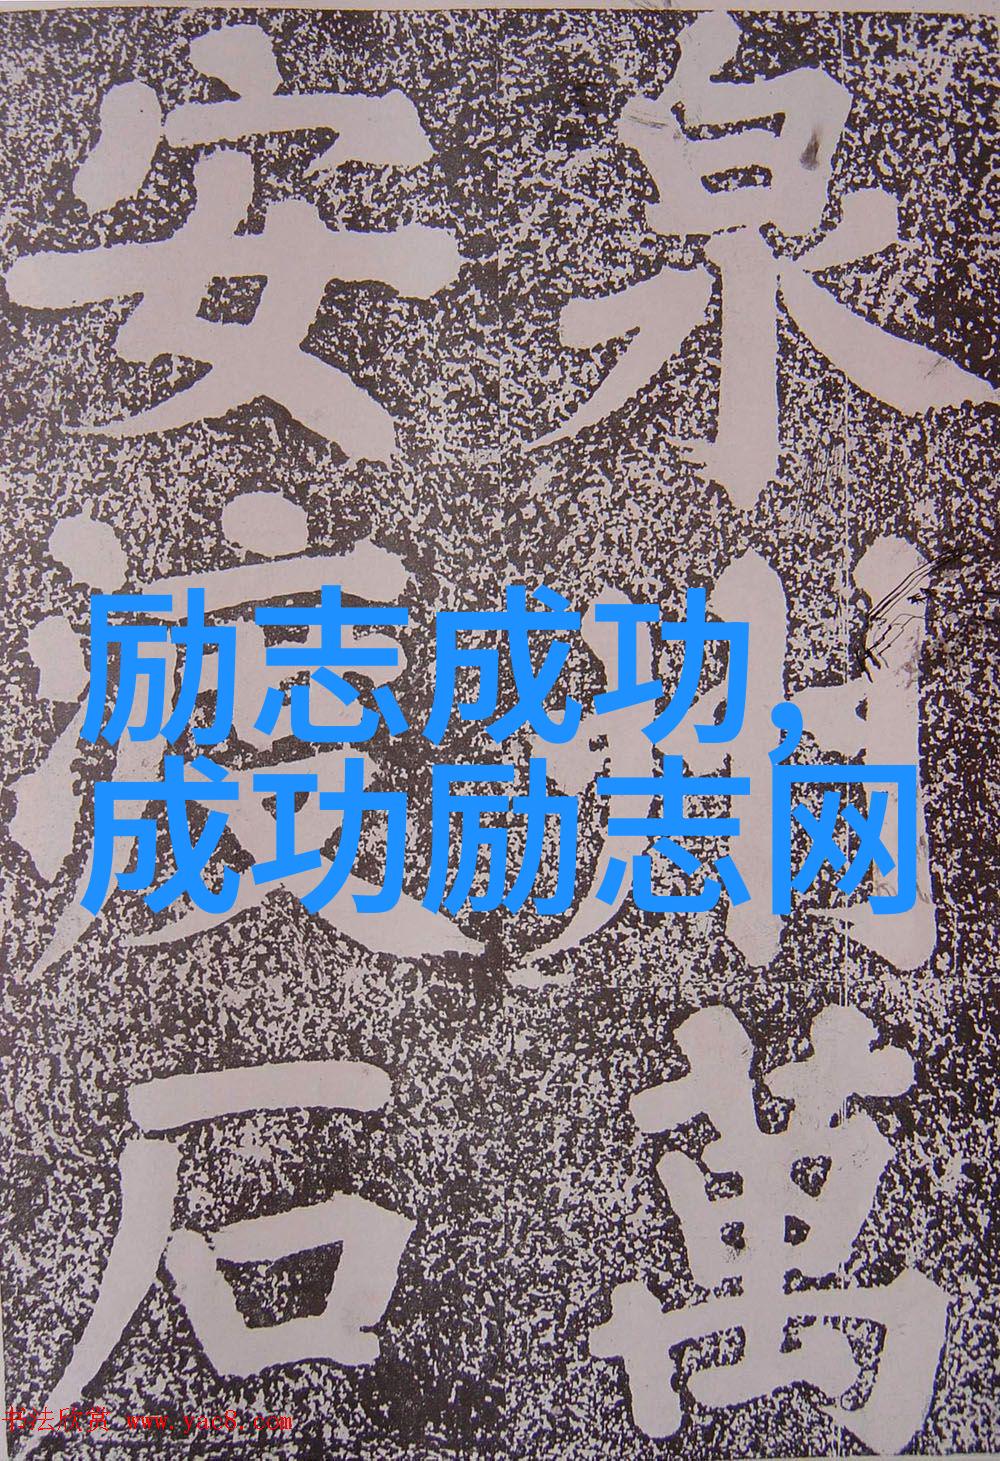 泉州萬
安渡石
励志成功,
成功励志网
书法欣赏 www.yac8.com